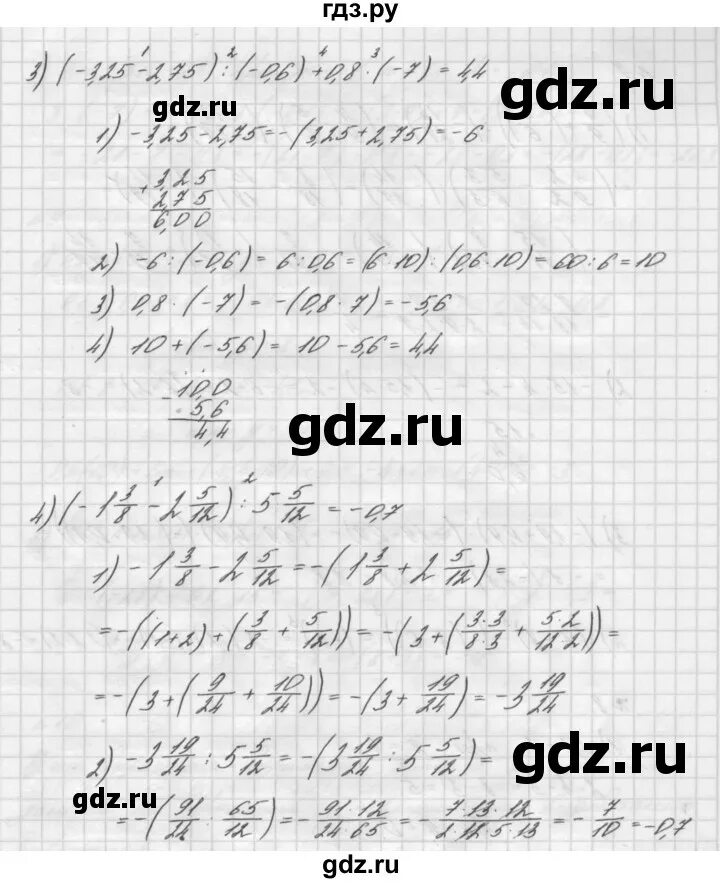 гдз.ру
3) (-3,25 - 2,75) : (-0,6) + 0,8 · (-7) = 4,4
1 2 4 3
gdz.ru
1) -3,25 - 2,75 = -(3,25 + 2,75) = -6
+ 3,25
2,75
6,00
2) -6 : (-0,6) = 6 : 0,6 = (6 · 10) : (0,6 · 10) = 60 : 6 = 10
3) 0,8 · (-7) = -(0,8 · 7) = -5,6
4) 10 + (-5,6) = 10 - 5,6 = 4,4
- 10,0
5,6
4,4
gdz.ru
4) (-1 3/8 - 2 5/12) : 5 5/12 = -0,7
1 2
1) -1 3/8 - 2 5/12 = -(1 3/8 + 2 5/12) =
= -((1+2) + (3/8 + 5/12)) = -(3 + (3·3/8·3 + 5·2/12·2)) =
= -(3 + (9/24 + 10/24)) = -(3 + 19/24) = -3 19/24
2) -3 19/24 : 5 5/12 = -(3 19/24 : 5 5/12) =
gdz.ru
gdz.ru
= -(91/24 : 65/12) = -91·12/24·65 = -7·13·12/2·12·5·13 = -7/10 = -0,7
gdz.ru